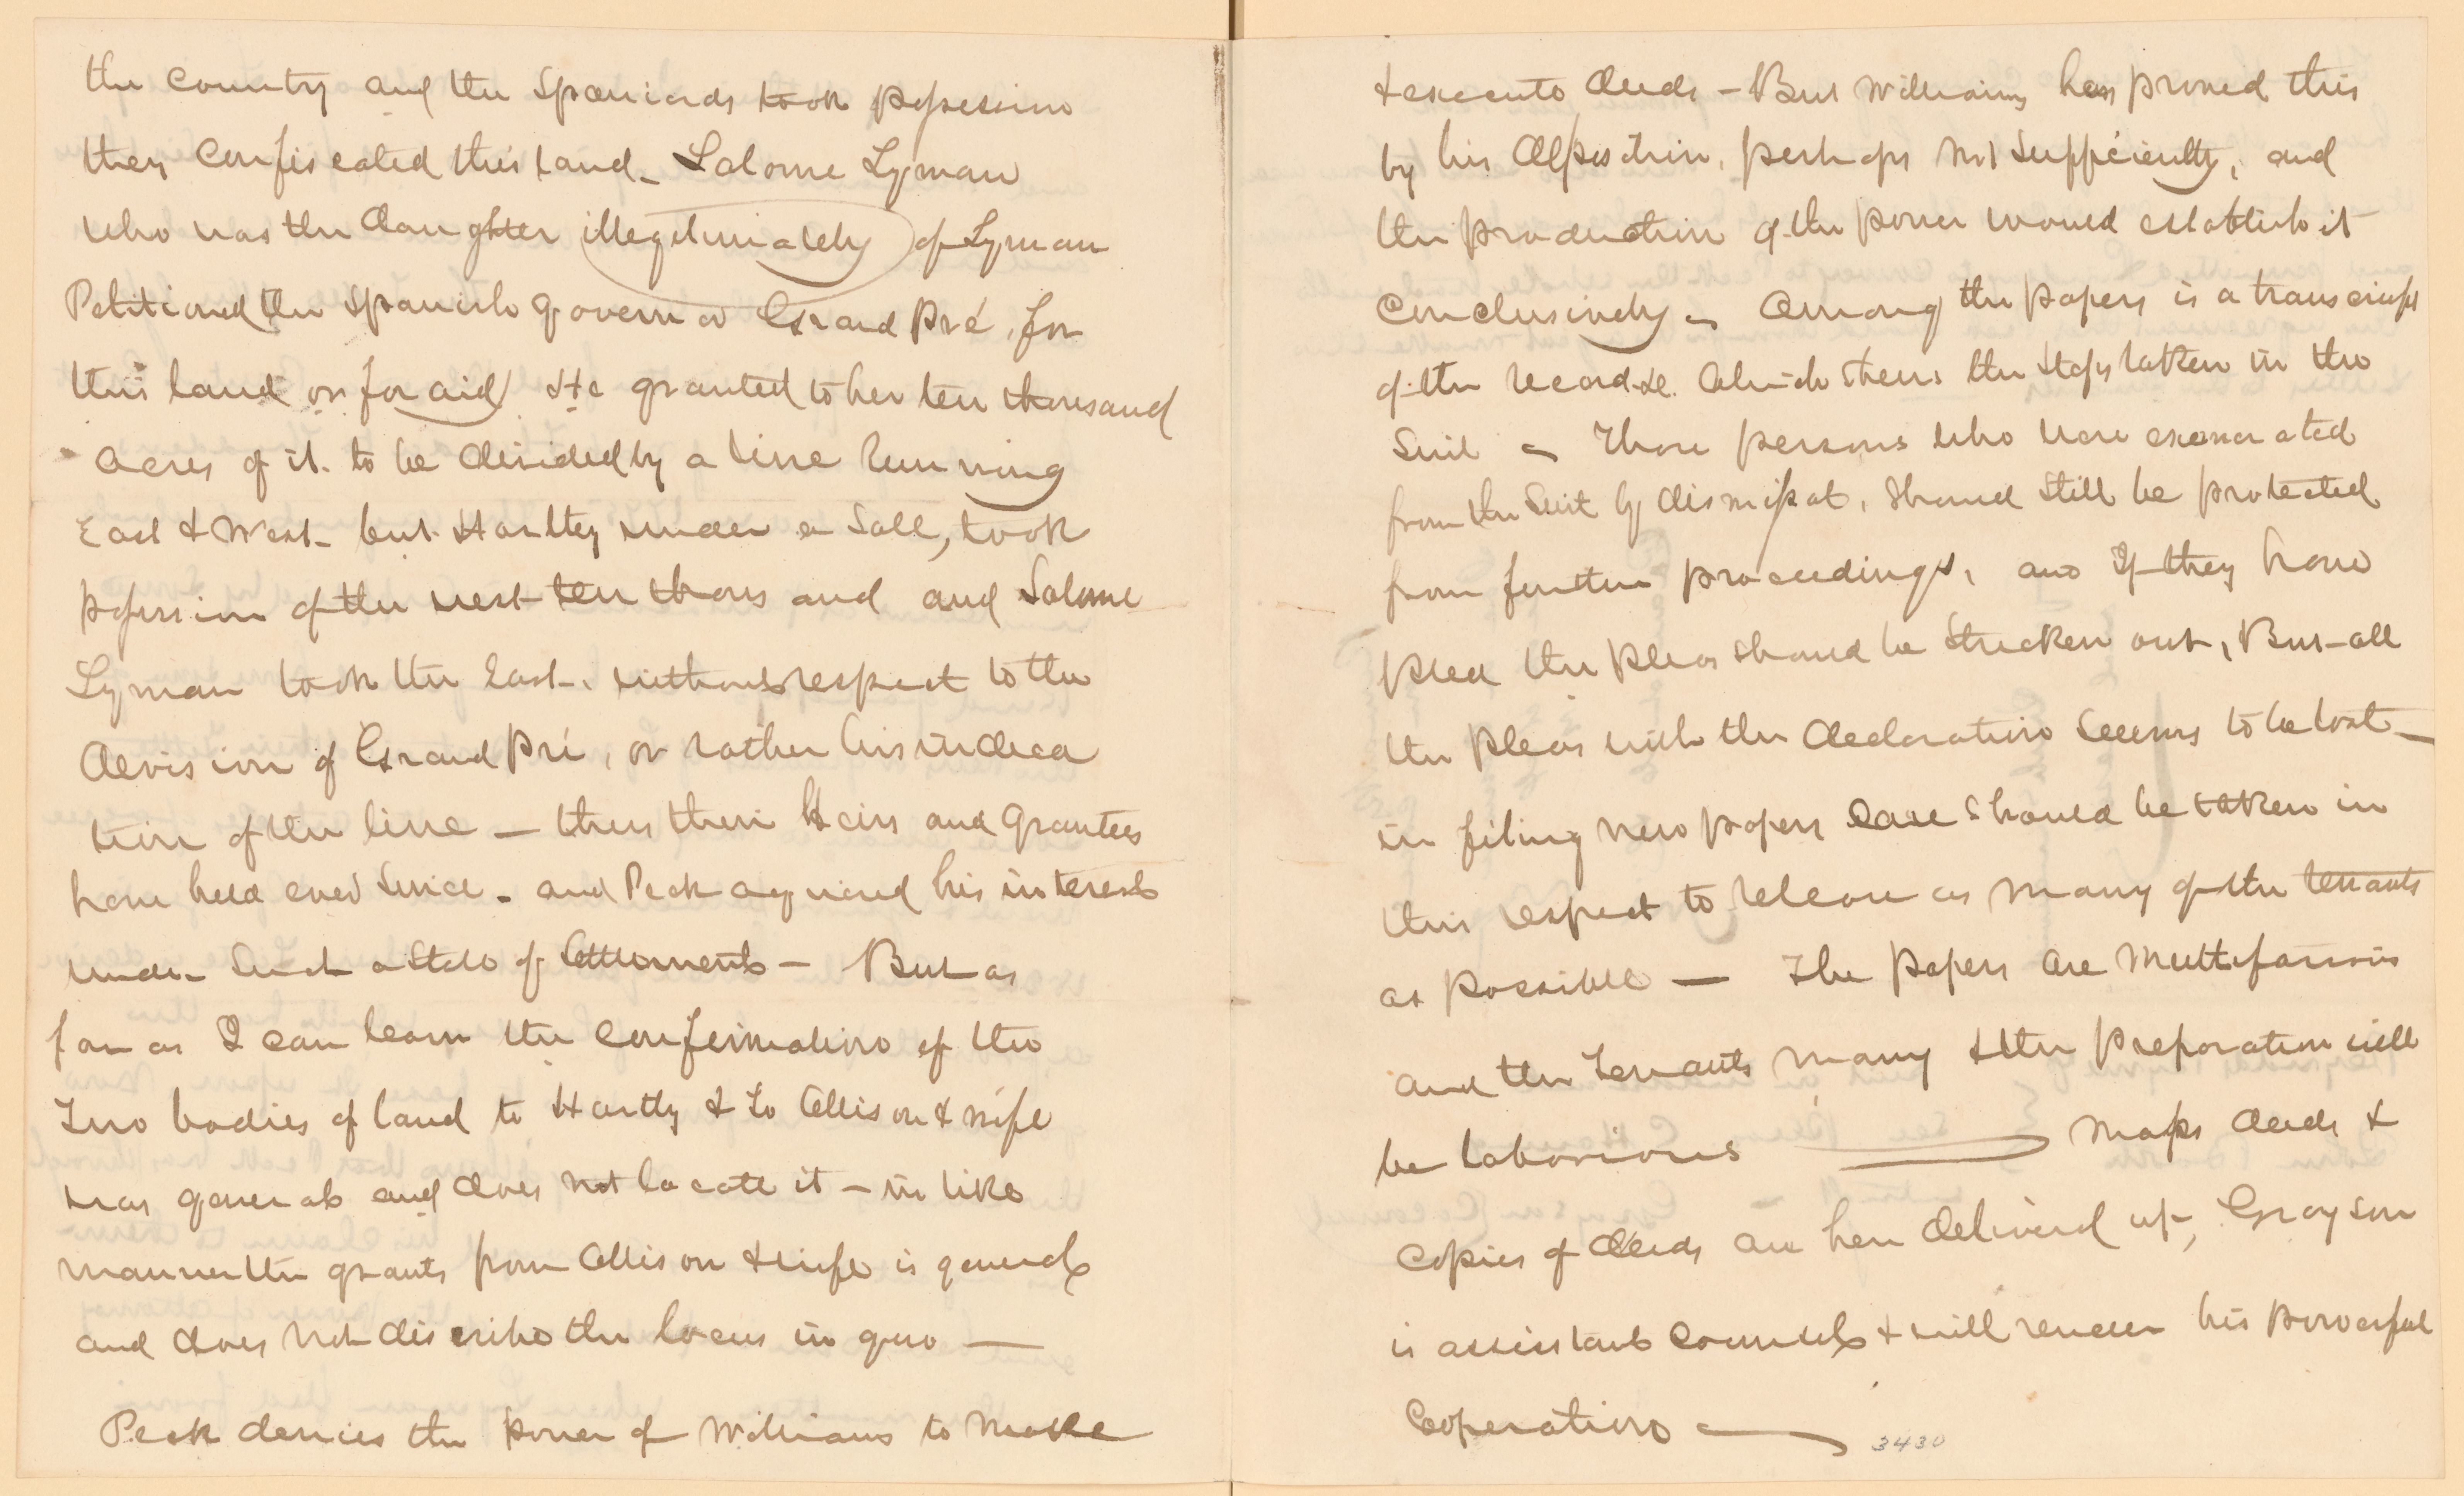 the country and the Spaniards took possession
they confiscated this land - Salome Lyman
who was the daughter illegitimately of Lyman
Petitioned the Spanish governor Grand Pré, for
this land or for aid He granted to her ten thousand
acres of it. to be divided by a line running
East & West - but Hartley under a sale, took
possession of the west ten thousand and Salome
Lyman took the East, without respect to the
devision of Grand Pré, or rather his indica
tion of the line — thus their Heirs and grantees
have held ever since - and Peck acquired his interest
under such a state of settlement — But as
far as I can learn the confirmation of the
Two bodies of land to Hartly & to Allison & wife
was general and does not locate it — in like
manner the grants from Allison & wife is general
and does not describe the locus in quo —
Peck denies the power of Williams to make
& execute deeds — But Williams has proved this
by his deposition, perhaps not sufficiently, and
the production of the power would establish it
conclusively - Among the papers is a transcript
of the record &c. which shews the steps taken in the
suit - Those persons who were exonerated
from the suit by dismissal, should still be protected
from further proceedings, and if they have
plead the pleas should be stricken out, But all
the pleas with the declaration seems to be lost —
in filing new papers care should be taken in
this respect to release as many of the tenants
as possible — The papers are multifarious
and the Tenants many & the preparation will
be laborious — maps deeds &
copies of deeds are here delivered up, Grayson
is assistant counsel & will render his powerful
cooperation —
3430